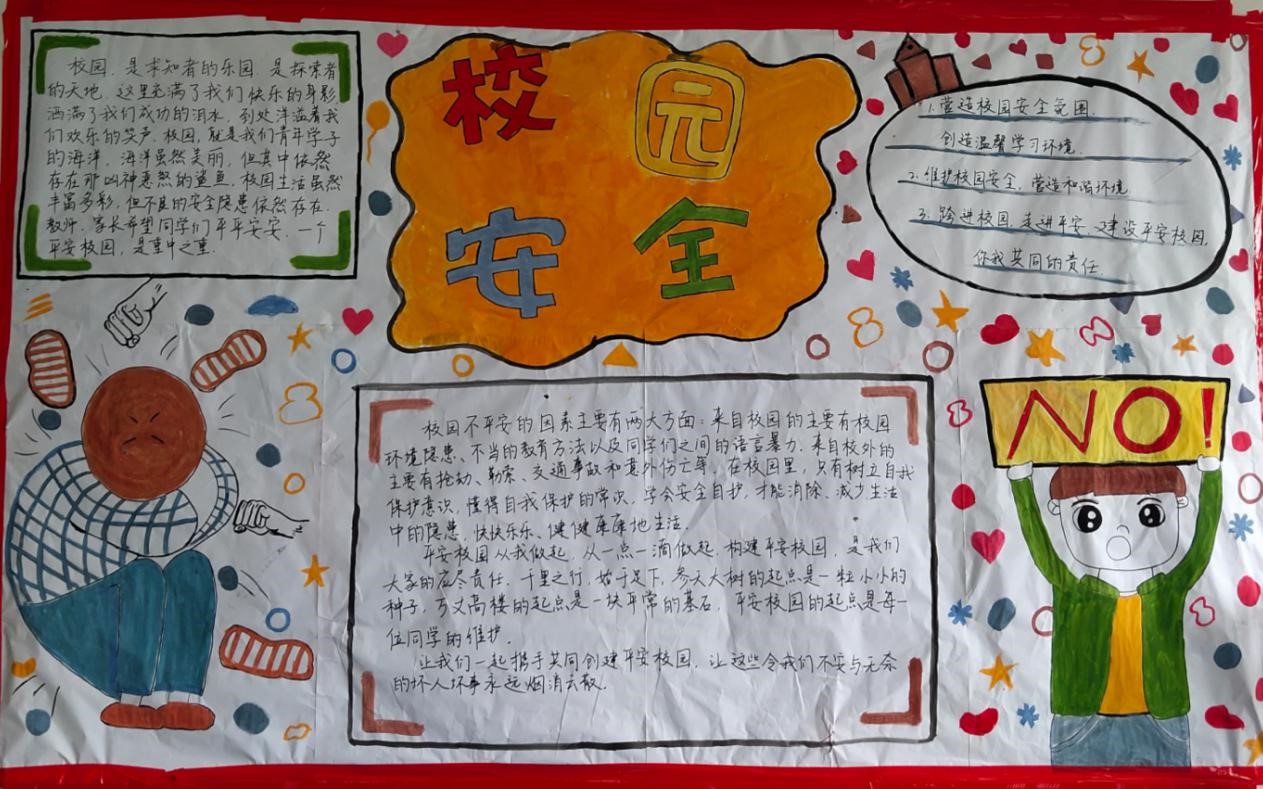 校园，是求知者的乐园，是探索者
的天地，这里充满了我们快乐的身影
洒满了我们成功的泪水，到处洋溢着我
们欢乐的笑声，校园，就是我们青年学子
的海洋，海洋虽然美丽，但其中依然
存在那凶神恶煞的鲨鱼，校园生活虽然
丰富多彩，但不良的安全隐患依然存在.
教师、家长希望同学们平平安安，一个
平安校园，是重中之重.
校园
安全
1.营造校园安全氛围.
创造温馨学习环境.
2.维护校园安全，营造和谐环境.
3.跨进校园，走进平安，建设平安校园，
你我共同的责任.
校园不平安的因素主要有两大方面：来自校园的主要有校园
环境隐患、不当的教育方法以及同学们之间的语言暴力.来自校外的
主要有抢劫、勒索、交通事故和意外伤亡等，在校园里，只有树立自我
保护意识，懂得自我保护的常识，学会安全自护，才能消除、减少生活
中的隐患，快快乐乐、健健康康地生活.
平安校园从我做起，从一点一滴做起，构建平安校园，是我们
大家的应尽责任，千里之行，始于足下，参天大树的起点是一粒小小的
种子，万丈高楼的起点是一块平常的基石，平安校园的起点是每一
位同学的维护.
让我们一起携手共同创建平安校园，让这些令我们不安与无奈
的坏人坏事永远烟消云散.
NO!